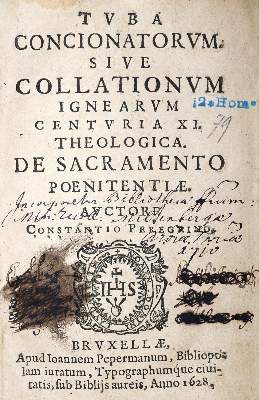 TVBA
CONCIONATORVM.
SIVE
COLLATIONVM
IGNEARVM
CENTVRIA XI.
THEOLOGICA.
DE SACRAMENTO
POENITENTIÆ.
AVCTORE
CONSTANTIO PEREGRINO.
12. Hom.
79
Incorporatus Bibliothecæ
1700
IHS
BRVXELLÆ,
Apud Ioannem Pepermanum, Bibliopo-
lam iuratum, Typographumque ciui-
tatis, sub Biblijs aureis, Anno 1628.